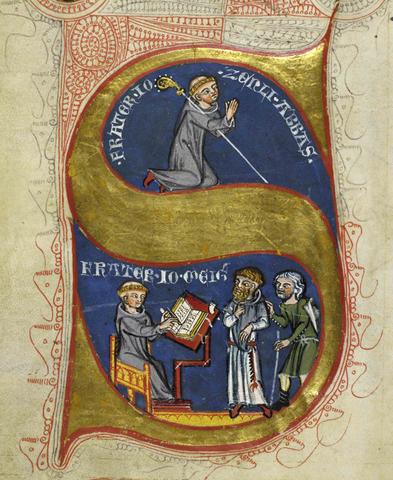 ·FRATER·IO· ZENLI·ABBAS·
FRATER·IO·MEIG᷒